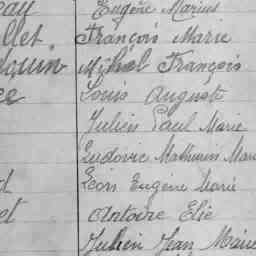 Eugène Marius
llet François Marie
douin Michel François
ce Louis Auguste
Julien Paul Marie
Ludovic Mathurin Marie
d Léon Eugène Marie
et Antoine Elie
Julien Jean Marie